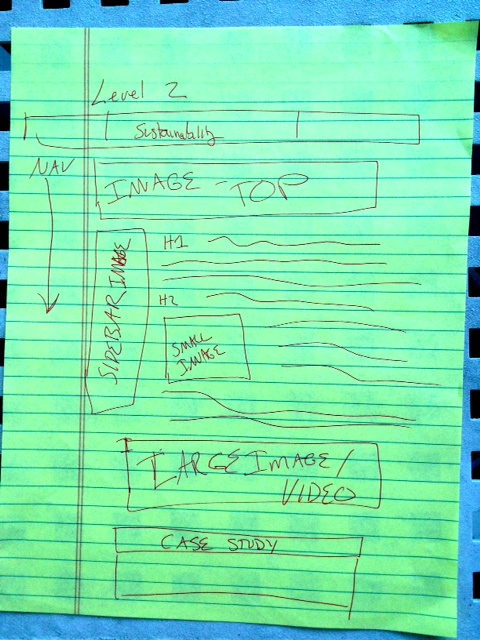 Level 2
Sustainability
NAV
IMAGE - TOP
SIDEBAR IMAGE
H1
H2
SMALL
IMAGE
LARGE IMAGE/
VIDEO
CASE STUDY